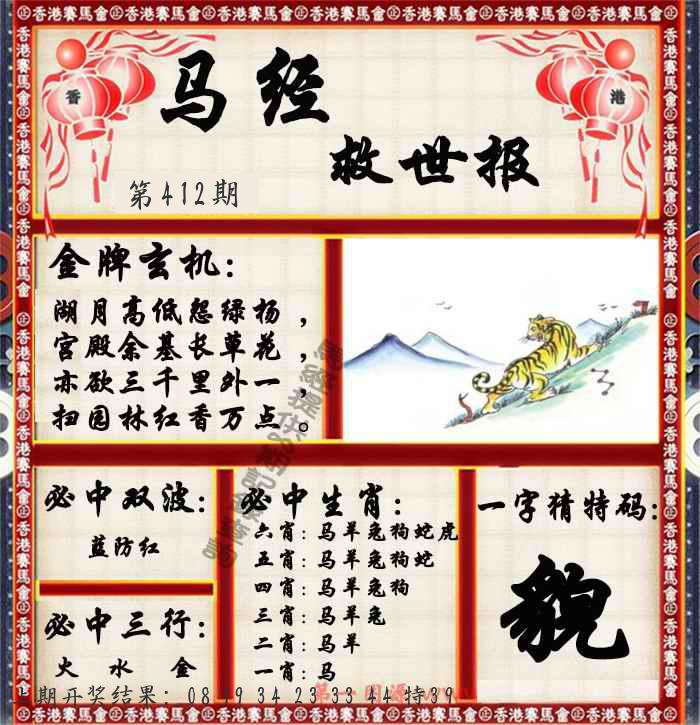 香港賽馬會
香
港
马经
救世报
第412期
金牌玄机：
湖月高低怨绿杨，
宫殿余基长草花，
亦欲三千里外一，
扫园林红香万点。
必中双波：
蓝防红
必中三行：
火 水 金
必中生肖：
六肖：马羊兔狗蛇虎
五肖：马羊兔狗蛇
四肖：马羊兔狗
三肖：马羊兔
二肖：马羊
一肖：马
一字猜特码：
貌
期开奖结果：08 19 34 23 33 44 特39